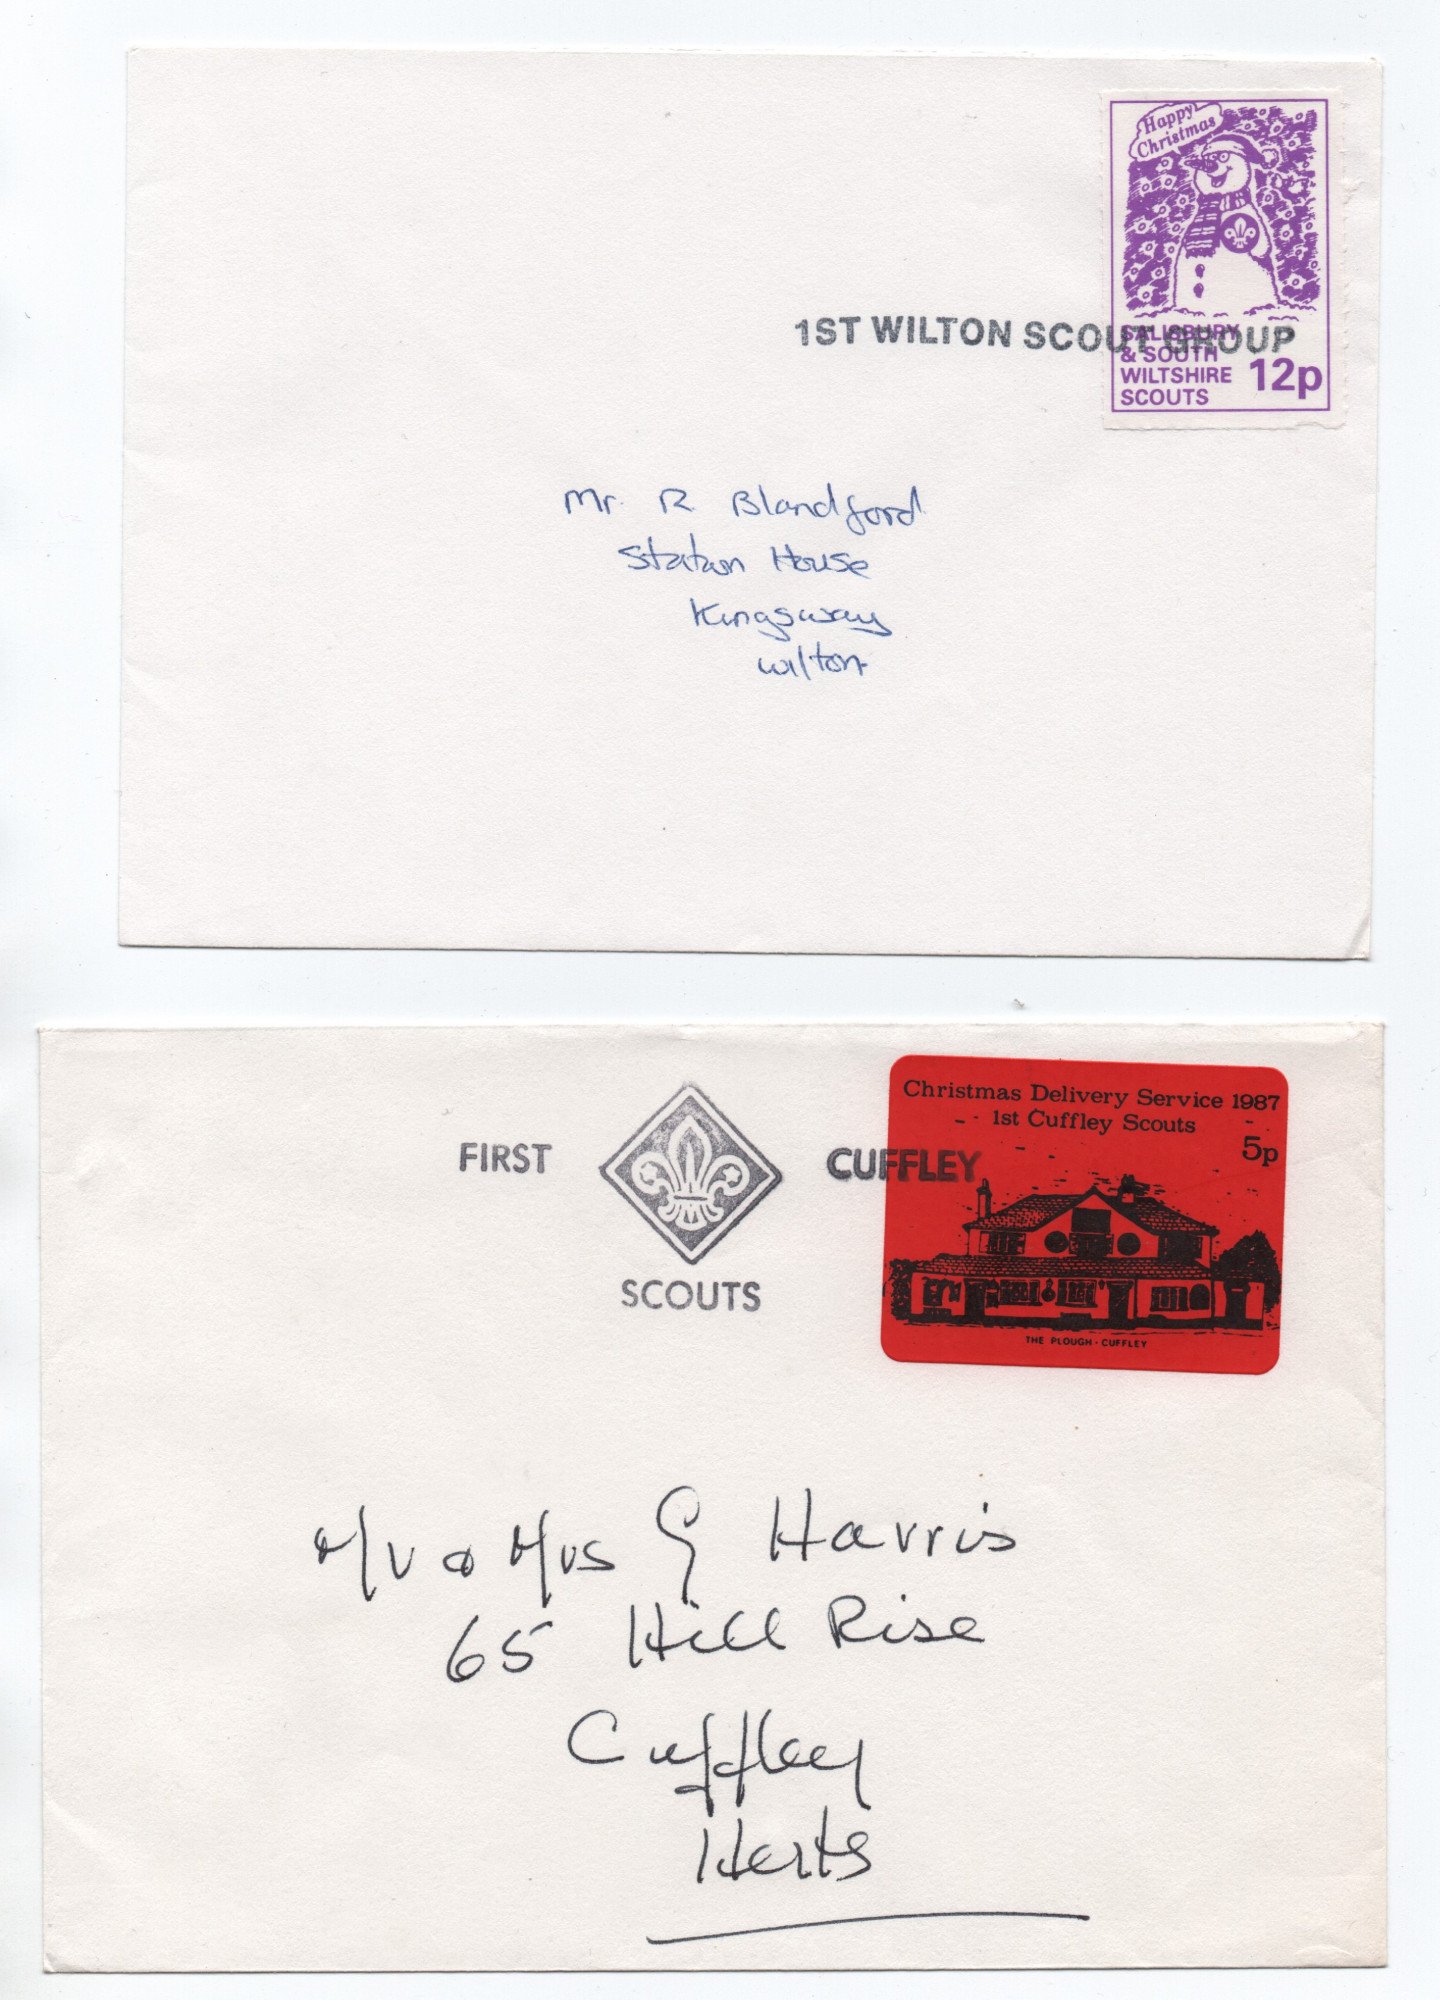 Happy
Christmas
1ST WILTON SCOUT GROUP
SALISBURY
& SOUTH
WILTSHIRE
SCOUTS
12p
Mr. R Blandford
Station House
Kingsway
Wilton
Christmas Delivery Service 1987
1st Cuffley Scouts
5p
FIRST CUFFLEY
SCOUTS
THE PLOUGH · CUFFLEY
Mr & Mrs G Harris
65 Hill Rise
Cuffley
Herts